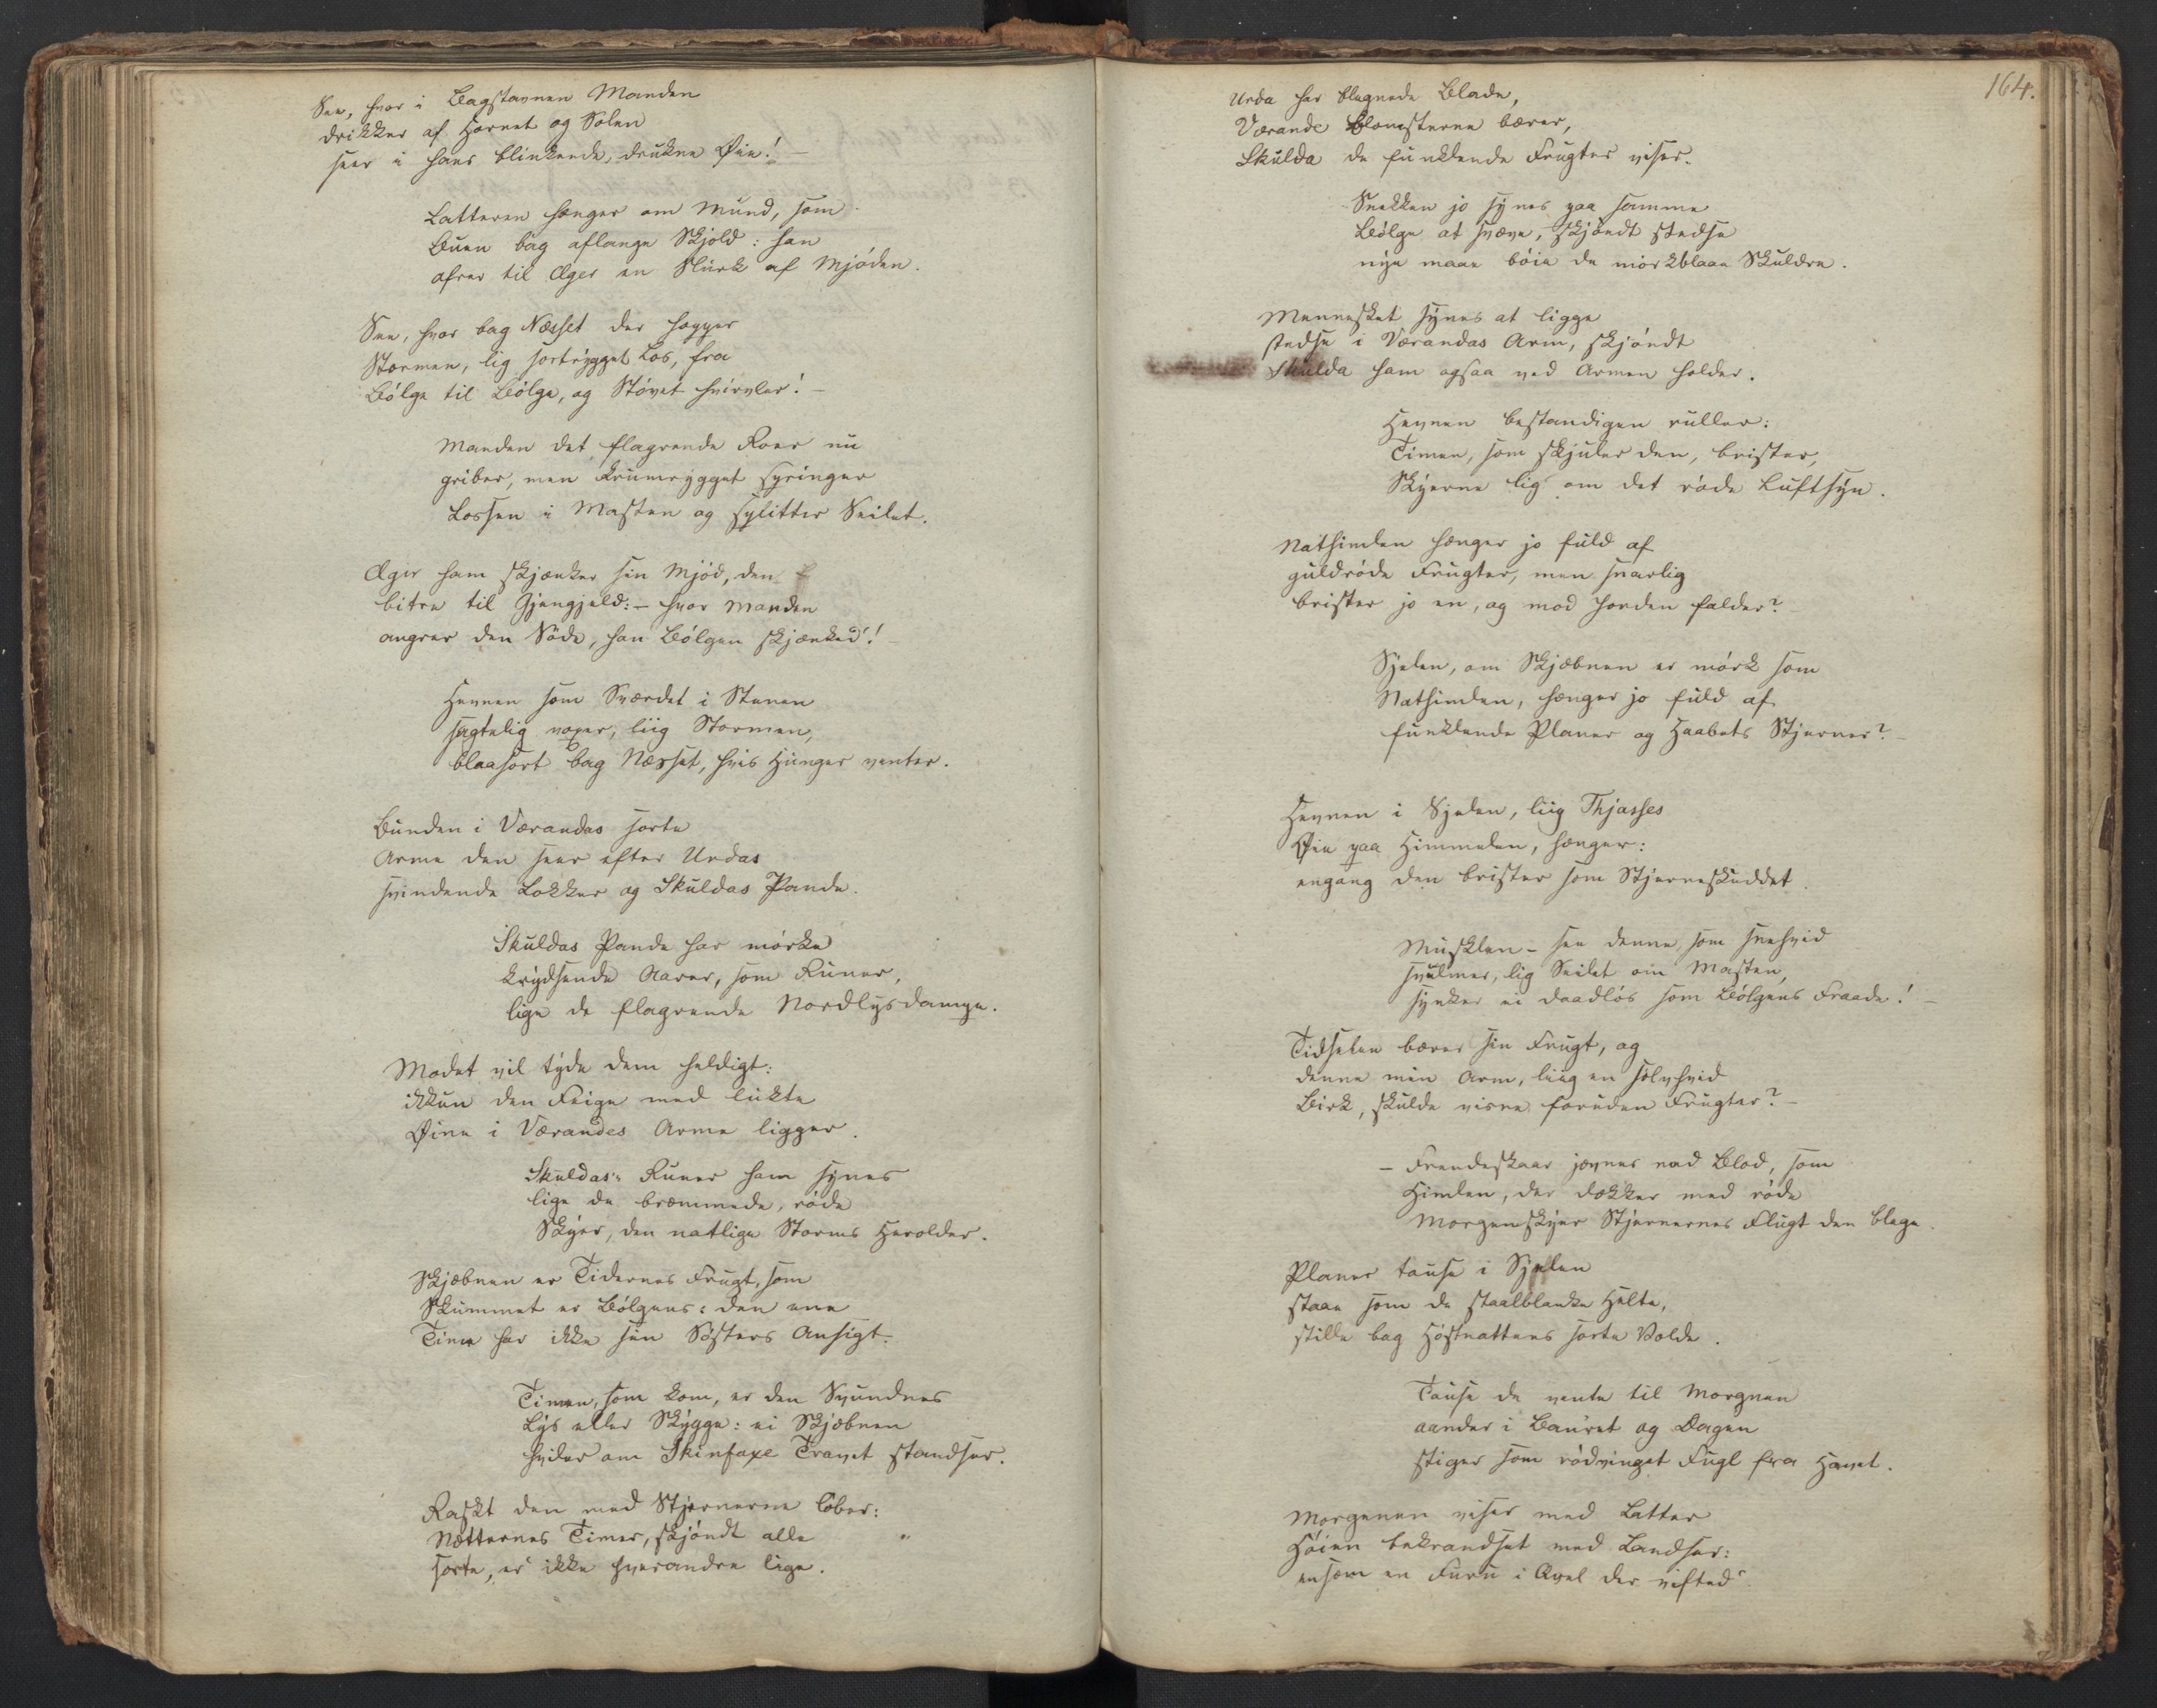 See, hvor i Bagstavnen Manden
drikker af Hornet og Solen
seer i hans blinkende, drukne Øie! –
Latteren hænger om Mund, som
Buen bag aflange Skjold: han
ofrer til Æger en Slurk af Mjøden.
See, hvor bag Næsset der hopper
Stormen, lig sortrygget Los, fra
Bølge til Bølge, og Støvet hvirvler! –
Manden det flagrende Roer nu
griber, men krumrygget springer
Lossen i Masten og splitter Seilet.
Ægir ham skjænker sin Mjød, den
bitre til Gjengjeld: – hvor Manden
angrer den Søde, han Bølgen skjænked'! –
Hevnen som Sværdet i Stenen
sagtelig voxer, liig Stormen,
blaasort bag Næsset, hvis Hunger venter.
Bunden i Værandas sorte
Arme den seer efter Urdas
svindende Lokker og Skuldas Pande.
Skuldas Pande har mørke
krydsende Aarer, som Runer,
lige de flagrende Nordlysdampe.
Modet vil tyde dem heldigt:
ikkun den Feige med lukte
Øine i Værandes Arme ligger.
Skuldas's Runer ham synes
lige de bræmmede, røde
Skyer, den natlige Storms Herolder.
Skjæbnen er Tidernes Frugt, som
Skummet er Bølgens: den ene
Time har ikke sin Søsters Ansigt.
Timen, som kom, er den Svundnes
Lys eller Skygge: ei Skjæbnen
hviler om Skinfaxe Travet standser.
Raskt den med Stjernerne løber:
Nætternes Timer, skjøndt alle
sorte, er ikke hverandre lige.
164.
Urda har blegnede Blade,
Værande Blomsterne bærer,
Skulda de funklende Frugter viser.
Snekken jo synes paa samme
Bølge at svæve, skjøndt stedse
nye maae bøie de mørkblaae Skuldre.
Mennesket synes at ligge
stedse i Værandas Arm, skjøndt
Skulda ham ogsaa ved Armen holder.
Hevnen bestandigen ruller:
Timen, som skjuler den, brister,
Skyerne lig om det røde Luftsyn.
Nathimlen hænger jo fuld af
guldrøde Frugter, men snarlig
brister jo en, og mod Jorden falder? –
Sjelen, om Skjæbnen er mørk som
Nathimlen, hænger jo fuld af
funklende Planer og Haabets Stjerner? –
Hevnen i Sjelen, liig Thjasses
Øie paa Himmelen, hænger:
engang den brister som Stjerneskuddet.
Musklen – see denne, som sneehvid
svulmer, lig Seilet om Masten,
synker ei daadløs som Bølgens Fraade! –
Tidselen bærer sin Frugt, og
denne min Arm, liig en sølvhvid
Birk, skulde visne foruden Frugter? –
– Frendeskaar jevnes ved Blod, som
Himlen, der dækker med røde
Morgenskyer Stjernernes Flugt den blege.
Planer tause i Sjelen
staae som de staalblanke Helte,
stille bag Høstnattens sorte Volde.
Tause de vente til Morgnen
aander i Lauret og Dagen
stiger som rødvinget Fugl fra Havet.
Morgenen viser med Latter
Høien bekrandset med Landser:
ensom en Furu i Qvel der vifted'